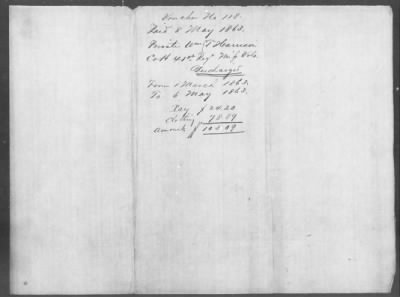 Voucher No 118.
Paid 8 May 1863.
Private Wm F Harrison
Co H 41st Reg't Vols.
Discharged
From 1 March 1863.
To 6 May 1863.
Pay $ 24.20
Clothing 78.89
Amount $ 103.09